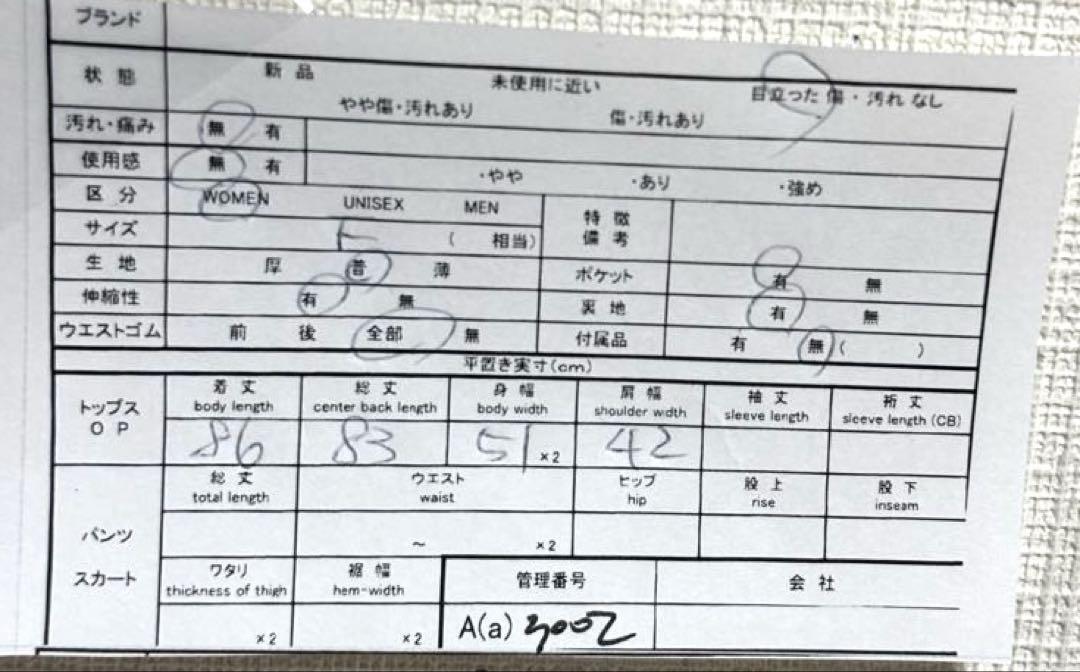 ブランド
状態 新品 未使用に近い 目立った傷・汚れなし
やや傷・汚れあり 傷・汚れあり
汚れ・痛み 無 有
使用感 無 有 ・やや ・あり ・強め
区分 WOMEN UNISEX MEN 特徴
備考
サイズ ( 相当)
生地 厚 普 薄 ポケット 有 無
伸縮性 有 無 裏地 有 無
ウエストゴム 前 後 全部 無 付属品 有 無 ( )
平置き実寸(cm)
トップス
OP
着丈 総丈 身幅 肩幅 袖丈 裄丈
body length center back length body width shoulder width sleeve length sleeve length (CB)
86 83 51 ×2 42
総丈 ウエスト ヒップ 股上 股下
total length waist hip rise inseam
パンツ
~ ×2
スカート
ワタリ 裾幅 管理番号 会社
thickness of thigh hem-width
×2 ×2 A(a) 3002